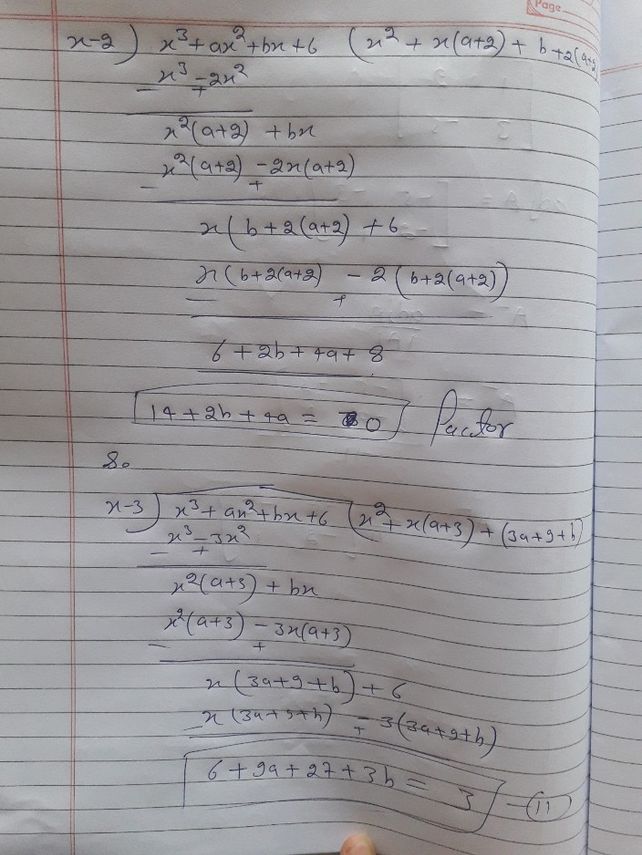 Page
x-2) x³+ax²+bx+6 (x² + x(a+2) + b+2(a+2)
x³-2x²
- +
x²(a+2) + bx
x²(a+2) -2x(a+2)
- +
x(b+2(a+2) +6
x(b+2(a+2) - 2(b+2(a+2))
- +
6+2b+4a+8
14+2b+4a = 0 factor
So
x-3) x³+ax²+bx+6 (x²+x(a+3)+(3a+9+b)
x³-3x²
- +
x²(a+3) + bx
x²(a+3) -3x(a+3)
- +
x(3a+9+b)+6
x(3a+9+b) - 3(3a+9+b)
- +
6+9a+27+3b = 3 - (11)